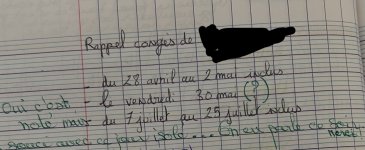 Rappel congés de
- du 28 avril au 2 mai inclus
- le vendredi 30 mai (?)
- du 7 juillet au 25 juillet inclus
Oui c'est
noté mais
avec ce jour isolé... On en parle ce soir,
merci!